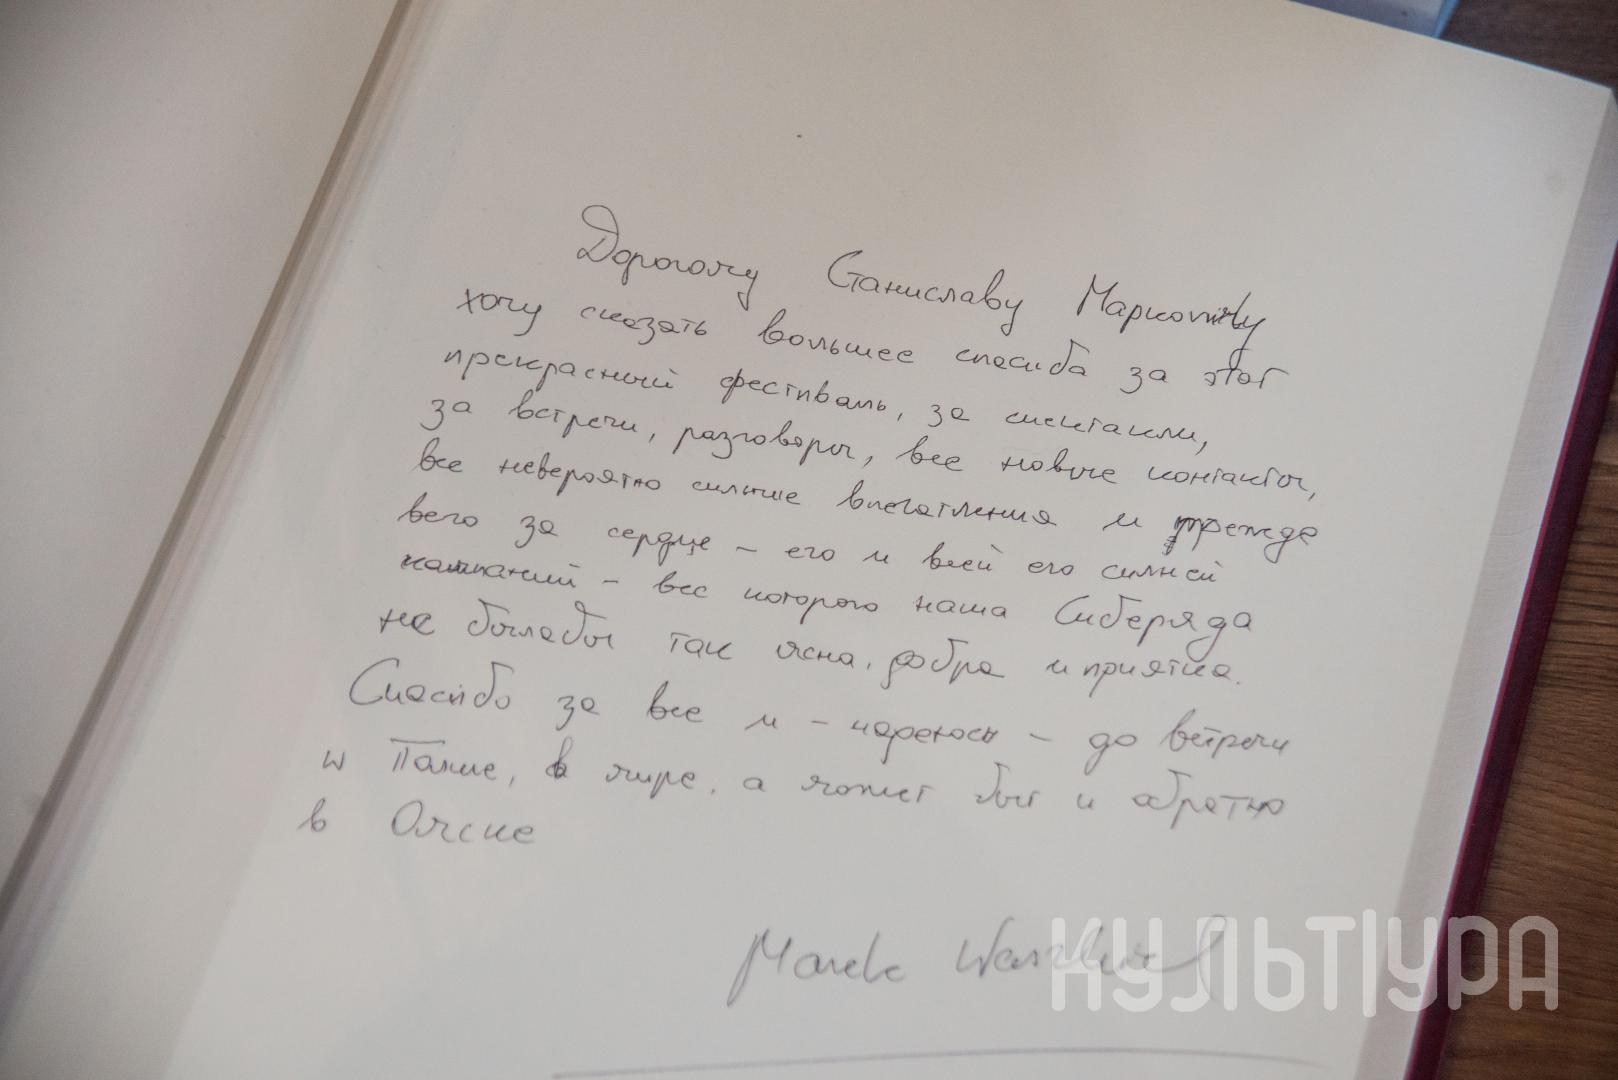 Дорогому Станиславу Марковичу
хочу сказать вольшее спасиба за этот
прекрасный фестиваль, за спектакли,
за встречи, разговоры, все новые контакты,
все невероятно сильные впечатления и прежде
всего за сердце - его и всей его сильней
кампаний - без которого наша Сибериада
не былабы так ясна, добра и приятна.
Спасибо за все и - надеюсь - до встречи
w Польше, в мире, а может быт и обратно
в Омске
Marek
КУЛЬТУРА